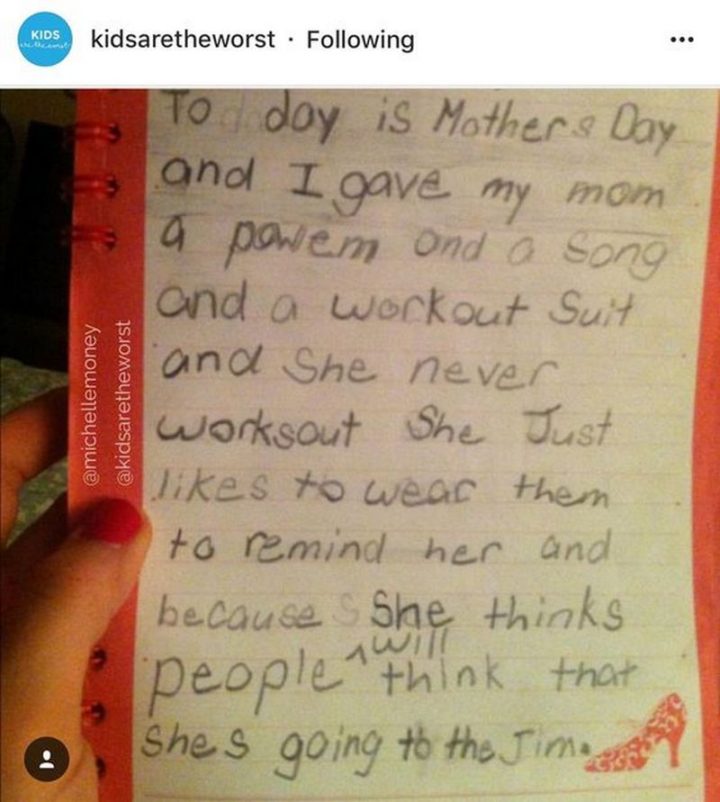 KIDS
kidsaretheworst · Following
To day is Mothers Day
and I gave my mom
a powem and a song
and a workout Suit
and She never
worksout She Just
likes to wear them
to remind her and
because She thinks
people ^will think that
shes going to the Jim.
@michellemoney
@kidsaretheworst